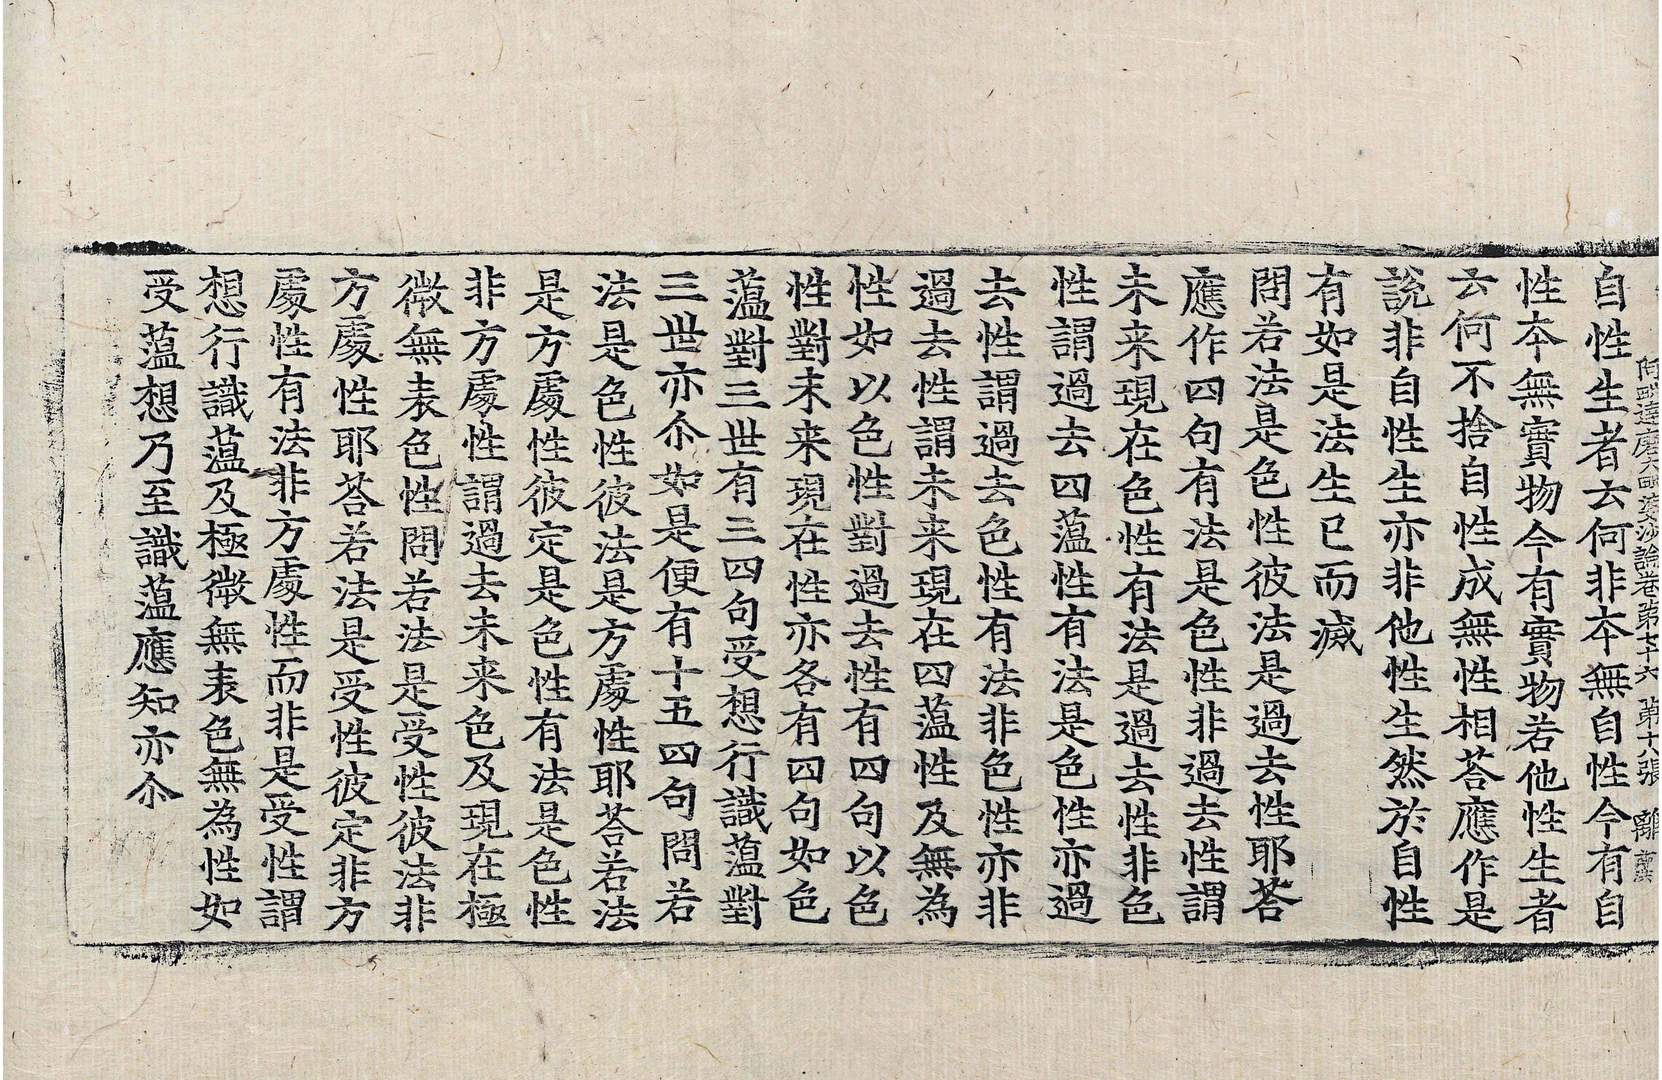 阿毗達磨大毗婆沙論卷第七十六　第十八張　離
自性生者去何非本無自性今有自
性本無實物今有實物若他性生者
云何不捨自性成無性相荅應作是
說非自性生亦非他性生然於自性
有如是法生已而滅
問若法是色性彼法是過去性耶荅
應作四句有法是色性非過去性謂
未来現在色性有法是過去性非色
性謂過去四薀性有法是色性亦過
去性謂過去色性有法非色性亦非
過去性謂未来現在四薀性及無為
性如以色性對過去性有四句以色
性對未来現在性亦各有四句如色
薀對三世有三四句受想行識薀對
三世亦尒如是便有十五四句問若
法是色性彼法是方處性耶荅若法
是方處性彼定是色性有法是色性
非方處性謂過去未来色及現在極
微無表色性問若法是受性彼法非
方處性耶荅若法是受性彼定非方
處性有法非方處性而非是受性謂
想行識薀及極微無表色無為性如
受薀想乃至識薀應知亦尒